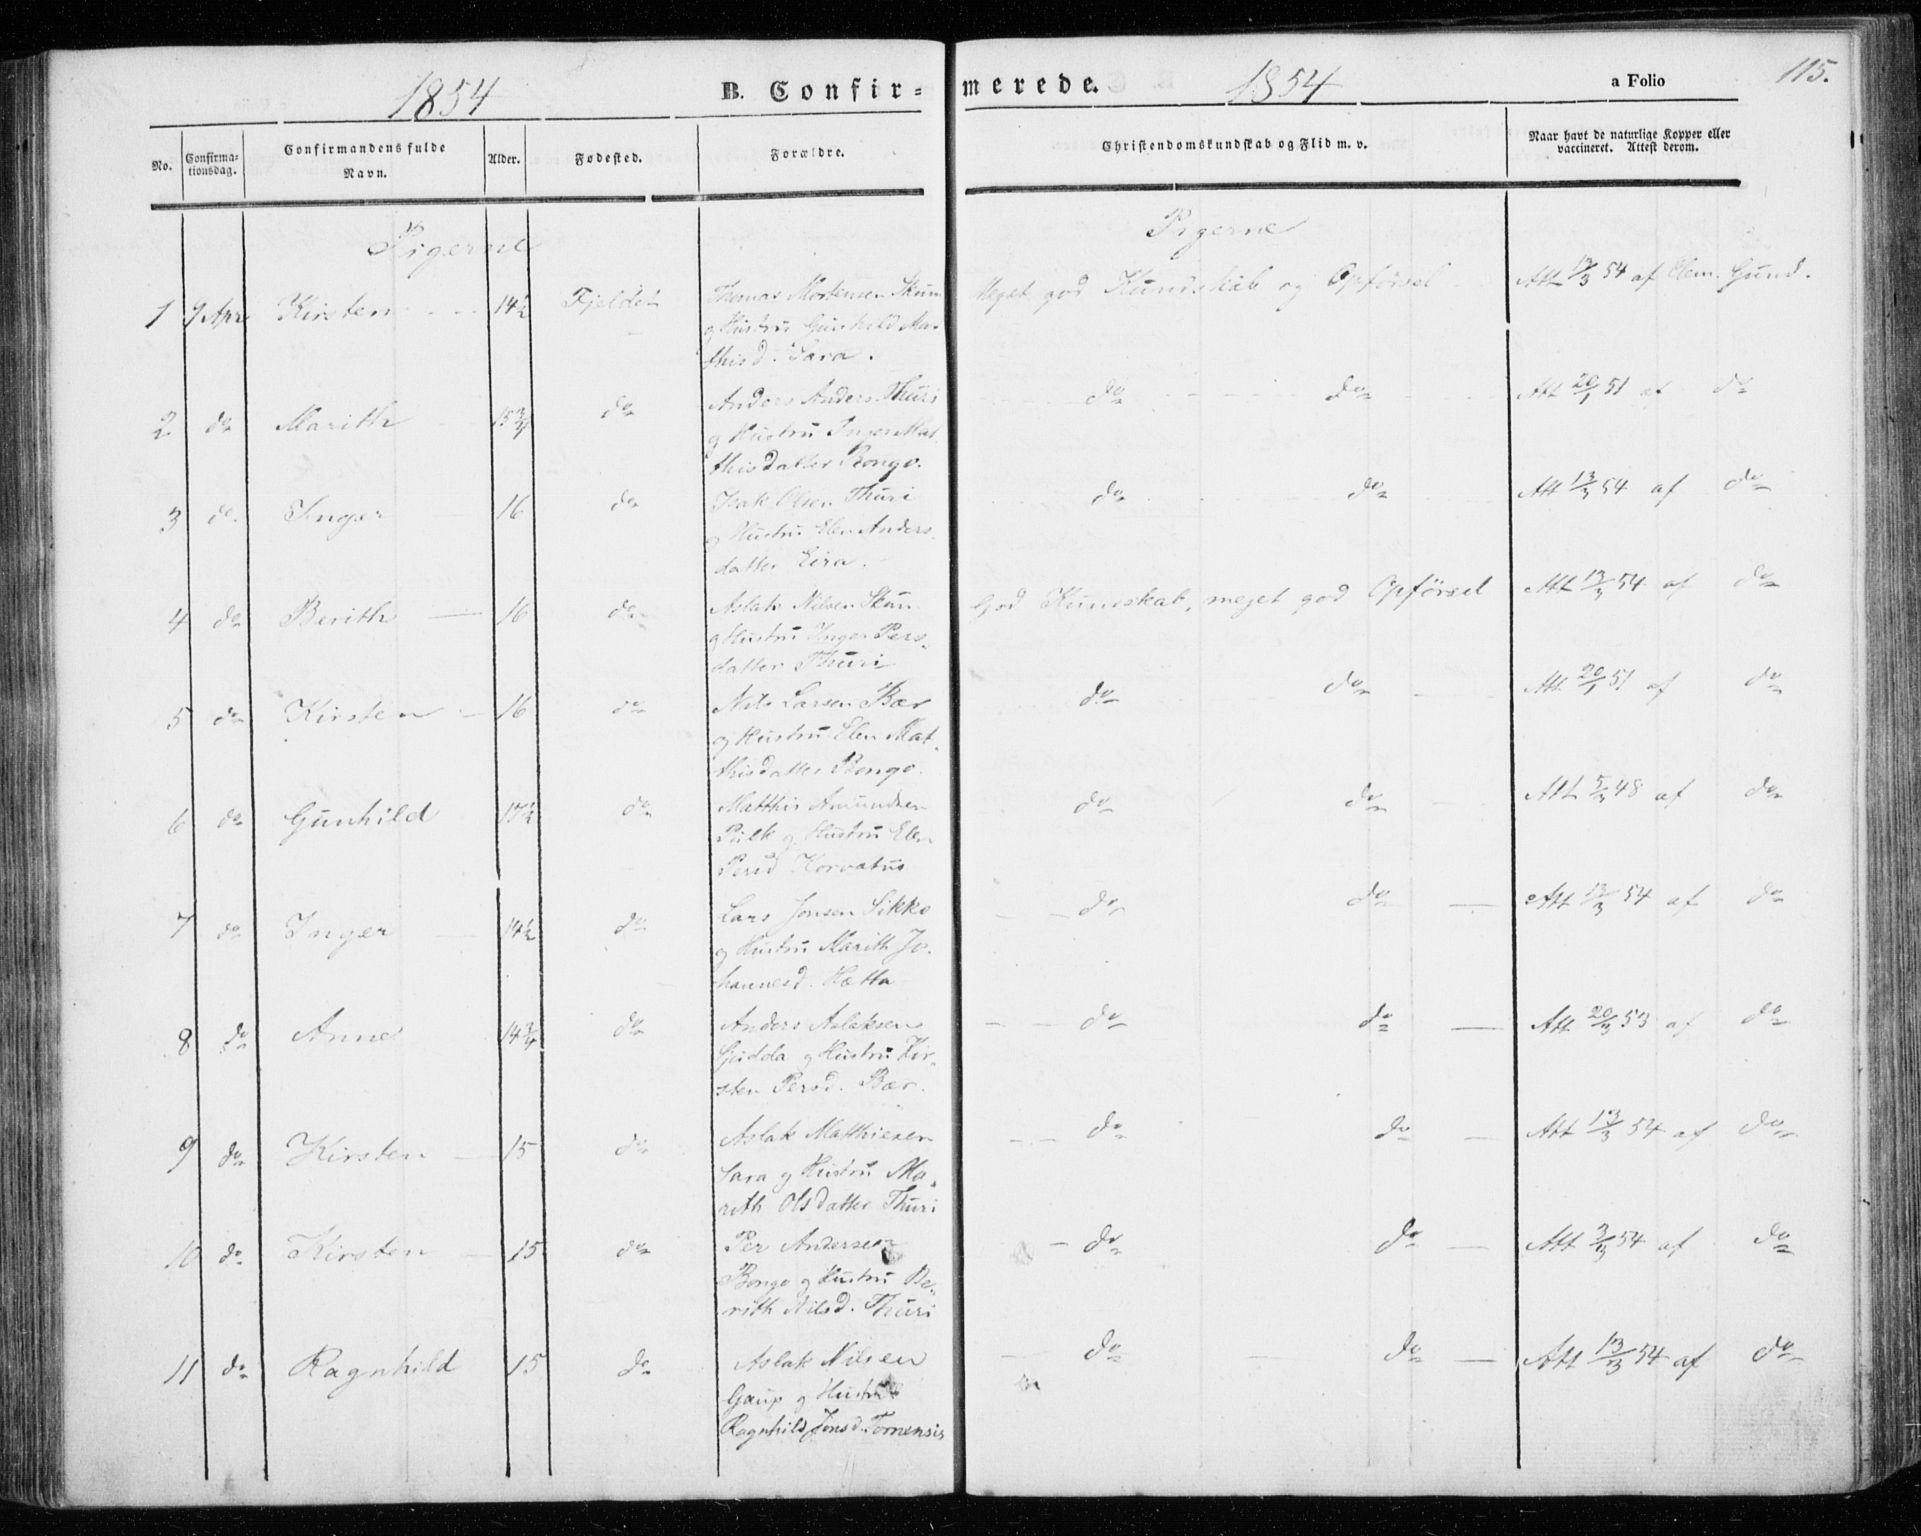 1854 B. Confir- merede. 1854 a Folio 115.
No. Confirma-tionsdag. Confirmandens fulde Navn. Alder. Fødested. Forældre. Christendomskundskab og Flid m. v. Naar havt de naturlige Kopper eller vaccineret. Attest derom.
Pigerne Pigerne
1 9 Apr Kirsten 14½ Fjeldet Thomas Mortensen Skum Meget god Kundskab og Opförsel Att 13/3 54 af Clem. Gund.
og Hustru Gunhild Mat-
thisd. Sara.
2 do Marith 15¾ do Anders Anders. Thuri do do Att 20/1 51 af do
og Hustru Inger Mat-
thisdatter Bongo.
3 do Inger 16 do Isak Olsen Thuri do do Att 13/3 54 af do
og Hustru Elen Anders-
datter Eira.
4 do Berith 16 do Aslak Nilsen Skum God Kundskab, meget god Opförsel Att 13/3 54 af do
og Hustru Inger Pers-
datter Thuri
5 do Kirsten 16 do Nils Larsen Bær do do Att 20/1 51 af do
og Hustru Elen Mat-
thisdatter Bongo.
6 do Gunhild 17½ do Matthis Amundsen do do Att 5/3 48 af do
Pulk og Hustru Elen
Persd Korvatus
7 do Inger 14½ do Lars Jonsen Sikko do do Att 13/3 54 af do
og Hustru Marith Jo-
hannesd. Hætta
8 do Anne 14¾ do Anders Aslaksen do do Att 20/3 53 af do
Gudda og Hustru Kir-
sten Persd. Bær.
9 do Kirsten 15 do Aslak Matthiesen do do Att 13/3 54 af do
Sara og Hustru Ma-
rith Olsdatter Thuri
10 do Kirsten 15 do Per Andersen do do Att 3/3 54 af do
Bongo og Hustru Be-
rith Nilsd. Thuri
11 do Ragnhild 15 do Aslak Nilsen do do Att 13/3 54 af do
Gaup og Hustru
Ragnhild Jonsd. Tornensis